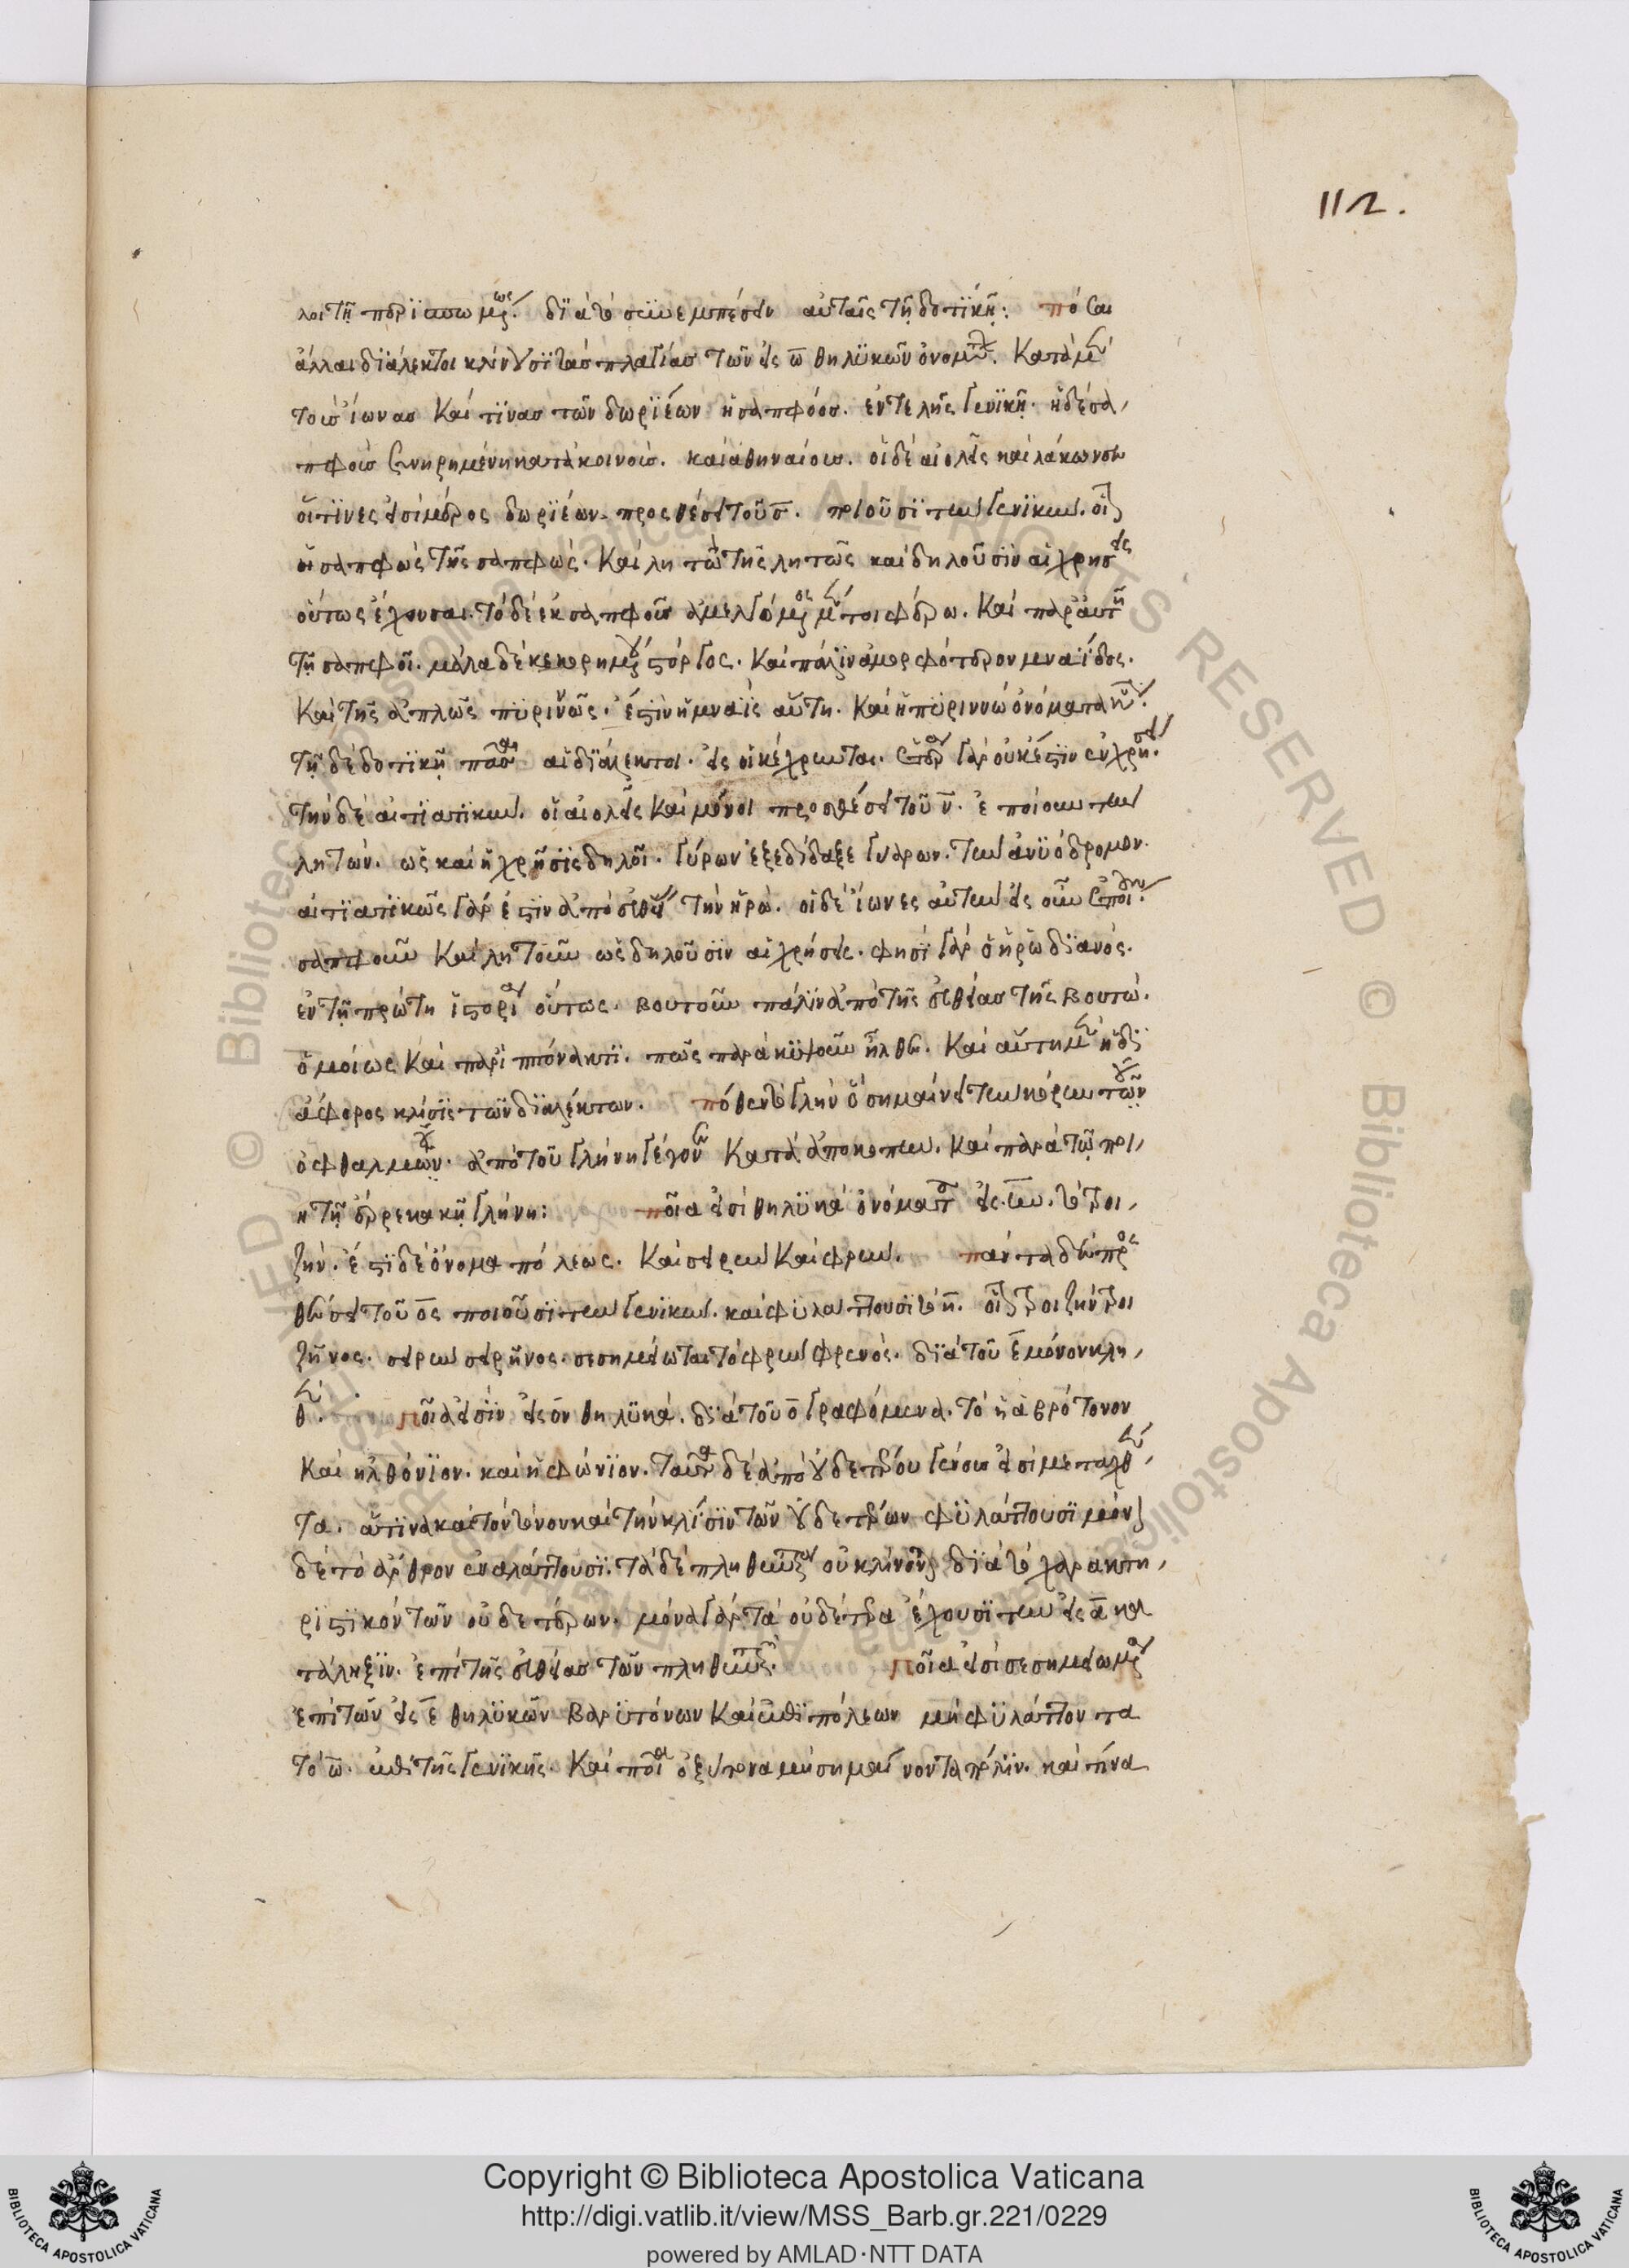 112.
λοι τῆ περισπωμένως. διὰ τὸ συνεμπέσειν αὐταῖς τῆ δοτικῆ: πόσαι
ἄλλαι διάλεκτοι κλίνουσι τὰς πλαγίας τῶν εἰς ω θηλυκῶν ὀνομάτων. κατὰ μὲν
τοὺς ἴωνας καί τινας τῶν δωριέων ἡ σαπφόος. ἐντελῆς γενικῆ. ἡ δὲ σα
πφοῦς συνηρημένη κατὰ κοινούς. καὶ ἀθηναίους. οἱ δὲ αἰολεῖς καὶ λάκωνες
οἵτινες εἰσὶ μέρος δωριέων. προσθέσει τοῦ σ. ποιοῦσι τὴν γενικήν. οἷον
ἡ σαπφὼς τῆς σαπφῶς. καὶ λητὼ τῆς λητῶς καὶ δηλοῦσιν αἱ χρήσεις
οὕτως ἔχουσαι. τὸ δὲ ἐκ σαπφοῦς
τῆ σαπφοῖ. μάλα δὲ κεκορημένου στόργος. καὶ πάλιν
καὶ τῆς ἁπλῶς πυριννῶς. ἐστὶν ἡ μναῒς αὕτη. καὶ ἡ πυριννὼ ὀνόματα
τῆ δὲ δοτικῆ πᾶσαι αἱ διάλεκτοι. εἰς οι κέχρηνται. γὰρ οὐκ ἔστιν εὑρεῖν
τὴν δὲ αἰτιατικὴν. οἱ αἰολεῖς καὶ μόνοι προσθέσει τοῦ ν. ἐποίουν τὴν
λητών. ὡς καὶ ἡ χρῆσις δηλοῖ. ἐξεδίδαξε γυάρων. τὴν ἀνυόδρομον.
αἰτιατικῶς γάρ ἐστιν ἀπὸ εὐθείας τὴν ἡρώ. οἱ δὲ ἴωνες αὐτὴν εἰς ουν
σαπφοῦν καὶ λητοῦν ὡς δηλοῦσιν αἱ χρήσεις. φησὶ γὰρ ὁ ἡρωδιανός.
ἐν τῆ πρώτη ἱστορία οὕτως. βουτοῦν πάλιν ἀπὸ τῆς εὐθείας τῆς βουτώ.
ὁμοίως καὶ παρ' ἱππώνακτι. πῶς παρὰ κυψοῦν ἦλθε. καὶ αὕτη μὲν ἡ δι
άφορος κλίσις τῶν διαλέκτων. πόθεν τὸ γλὴν ὃ σημαίνει τὴν κόρην τῶν
ὀφθαλμῶν. ἀπὸ τοῦ γλήνη γέγονεν κατὰ ἀποκοπήν. καὶ παρὰ τῶ ποι
η τῆ ἔρρε κακὴ γλήνη: ποῖα εἰσὶ θηλυκὰ ὀνόματα εἰς ην. τὸ τροι
ζήν. ἔστι δὲ ὄνομα πόλεως. καὶ σειρὴν καὶ φρήν. πάντα δὲ προσ
θέσει τοῦ ος ποιοῦσι τὴν γενικήν. καὶ φυλάττουσι τὸ η. οἷον τροιζήν τροι
ζῆνος. σειρὴν σειρῆνος. σεσημείωται τὸ φρὴν φρενός. διὰ τοῦ ε μόνον κλι
θέν. ποῖα εἰσὶν εἰς ον θηλυκά. διὰ τοῦ ο γραφόμενα. τὸ ἡ ἀβρότονον
καὶ ἡ λθόνιον. καὶ ἡ φώνιον. ταῦτα δὲ ἀπὸ οὐδετέρου γένους εἰσὶ μεταλεχθέν
τα. ἅτινα καὶ τὸν τόνον καὶ τὴν κλίσιν τῶν οὐδετέρων φυλάττουσι μόνον
δὲ τὸ ἄρθρον ἐναλάττουσι. τὰ δὲ πληθυντικὰ οὐ κλίνονται διὰ τὸ χαρακτη
ριστικὸν τῶν οὐδετέρων. μόνα γὰρ τὰ οὐδέτερα ἔχουσι τὴν εἰς α κα
τάληξιν. ἐπὶ τῆς εὐθείας τῶν πληθυντικῶν. ποῖα εἰσὶ σεσημειωμένα
ἐπὶ τῶν εἰς ε θηλυκῶν βαρυτόνων καὶ ἐπὶ πόλεων μὴ φυλάττοντα
τὸ ω. ἐπὶ τῆς γενικῆς. καὶ ποῖα ὀξύτονα μὴ σημαίνοντα πόλιν. καὶ τίνα
Copyright © Biblioteca Apostolica Vaticana
http://digi.vatlib.it/view/MSS_Barb.gr.221/0229
powered by AMLAD·NTT DATA
BIBLIOTECA APOSTOLICA VATICANA
BIBLIOTECA APOSTOLICA VATICANA